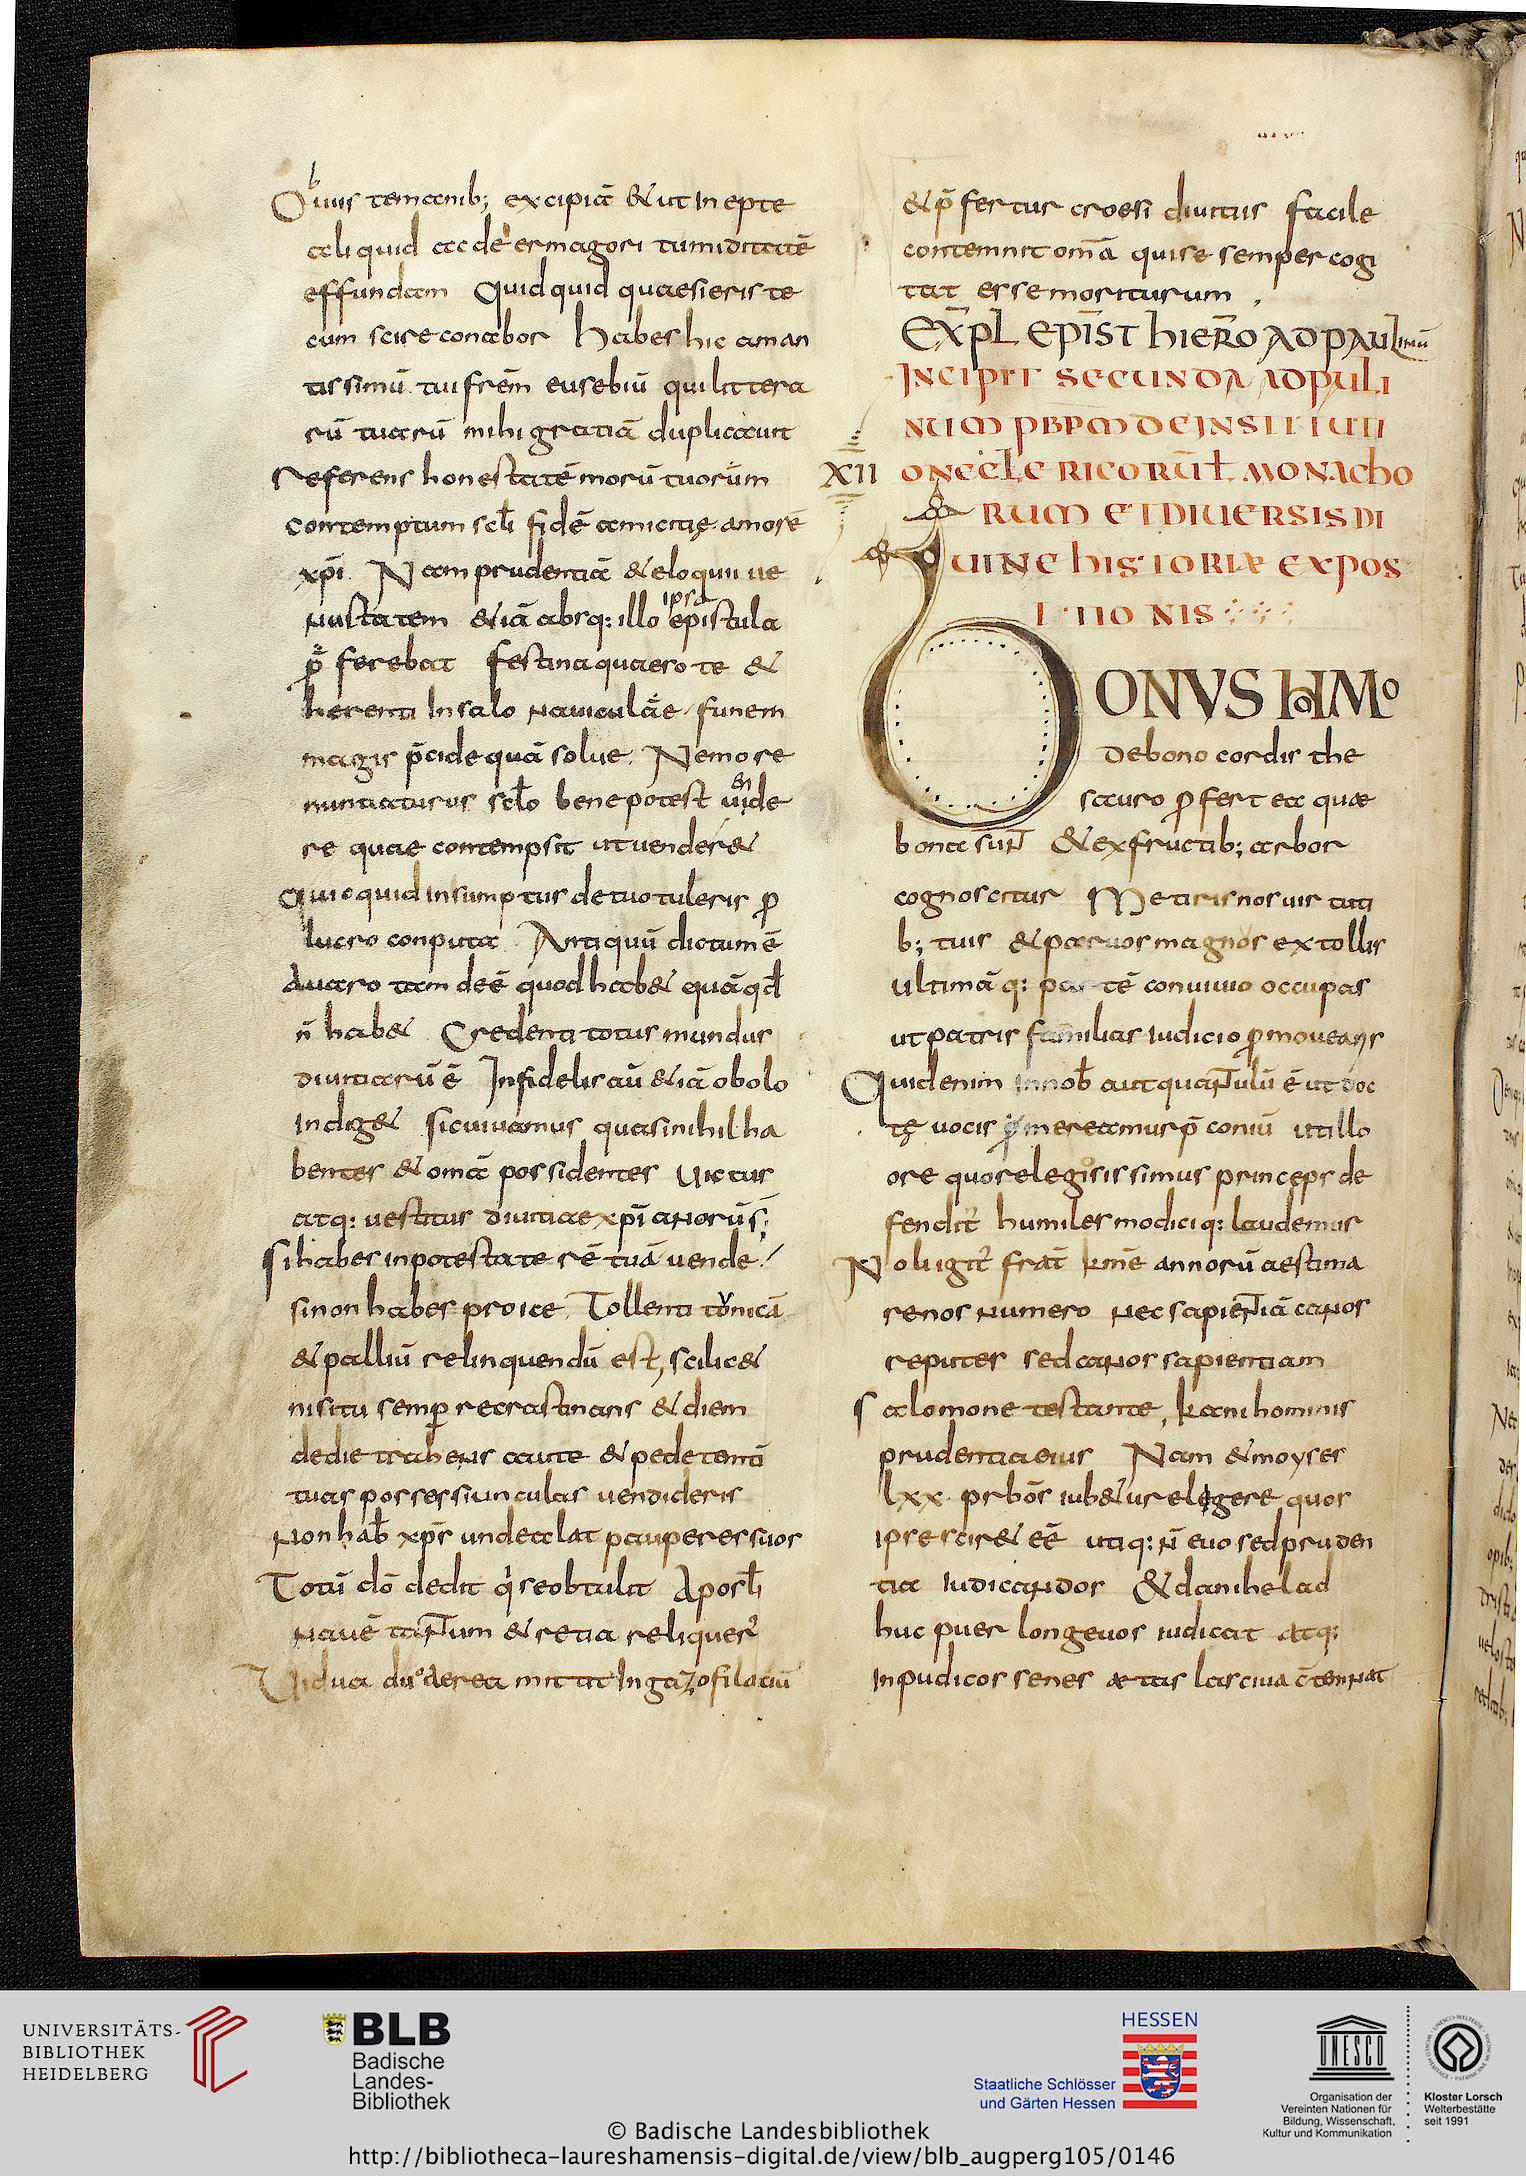 Obuiis tem manib; excipiā & ut in epte
aliquid ac de ermagori tumiditatē
effundam Quidquid quaesieris te
cum scire conabor habes hic aman
tissimū tui frēm eusebiū qui littera
rū tuarū mihi gratiā duplicauit
Referens honestatē morū tuorum
Contemptum scłi fidē amicitię amorē
xp̄i. Nam prudentiā & eloquii ue
nustatem & iā absq: illo ipsa epistula
p̄ ferebat festina quaero te &
herenti In salo nauiculae funem
magis p̄cide quā solue. Nemo re
nuntiaturus scł̄o bene potest uide
re quae contempsit ut uender&
Quicquid in sumptus de tuo tuleris ꝓ
lucro conputa Antiquū dictum ē
Auaro tam deē quod hab& quā qđ
n̄ hab& Credenti totus mundus
diuitiarū ē Infidelis aū &iā obolo
indig& sic uiuamus quasi nihil ha
bentes & om̄a possidentes Victus
atq: uestitus diuitiae xp̄ianorū s̄;
Si habes in potestate rē tuā uende
si non habes proice. Tollenti tonicā
& palliū relinquendū est, scilic&
nisi tu semꝑ recrastinans & diem
de die trahens caute & pedetemti
tuas possessiunculas uendideris
Non hab̄ xp̄s unde alat pauperes suos
Totū dō dedit q'seobtulit Aposłi
nauē tantum & retia reliquer̄
Vidua duo aerea mittit In gazofilatiū
& p̄fertur croesi diuitiis facile
contemnit om̄a qui se semper cogi
tat esse moriturum
EXPL̄ EPIST HIERŌ AD PAULinū
INCIPIT SECUNDA AD PULI
NUM PBPM DE INSTITUTI
XII
ONE CLERICORŪ ł MONACHO
RUM ET DIUERSIS DI
UINE HISTORIAE EXPOS
ITIONIS
BONVS HOMo
de bono cordis the
sauro ꝓfert ea quae
bona sunt & ex fructib; arbor
cognoscitur Metiris nos uirtuti
b; tuis & paruos magnos extollis
ultimā q: partē conuiuio occupas
ut patris familias iudicio ꝓmouearis
Quid enim In nob̄ aut quantulū ē ut doc
tę uocis ꝓmereamur p̄coniū ut illo
ore quo relegiosissimus princeps de
fendit' humiles modici q: laudemur
Noli igit' frāt kmē annorū aestima
re nos numero nec sapientiā canos
reputes sed canos sapientiam
Salomone testante, kani hominis
prudentia eius Nam & moyses
lxx prb̄os iub&ur elegere quos
ipse scir& eē utiq: n̄ euo sed pruden
tia iudicandos & danihel ad
huc puer longeuos iudicat Atq:
inpudicos senes aetas lasciua c̄tempnat
UNIVERSITÄTS-
BIBLIOTHEK
HEIDELBERG
BLB
Badische
Landes-
Bibliothek
HESSEN
Staatliche Schlösser
und Gärten Hessen
UNESCO
Organisation der
Vereinten Nationen für
Bildung, Wissenschaft,
Kultur und Kommunikation
Kloster Lorsch
Welterbestätte
seit 1991
© Badische Landesbibliothek
http://bibliotheca-laureshamensis-digital.de/view/blb_augperg105/0146